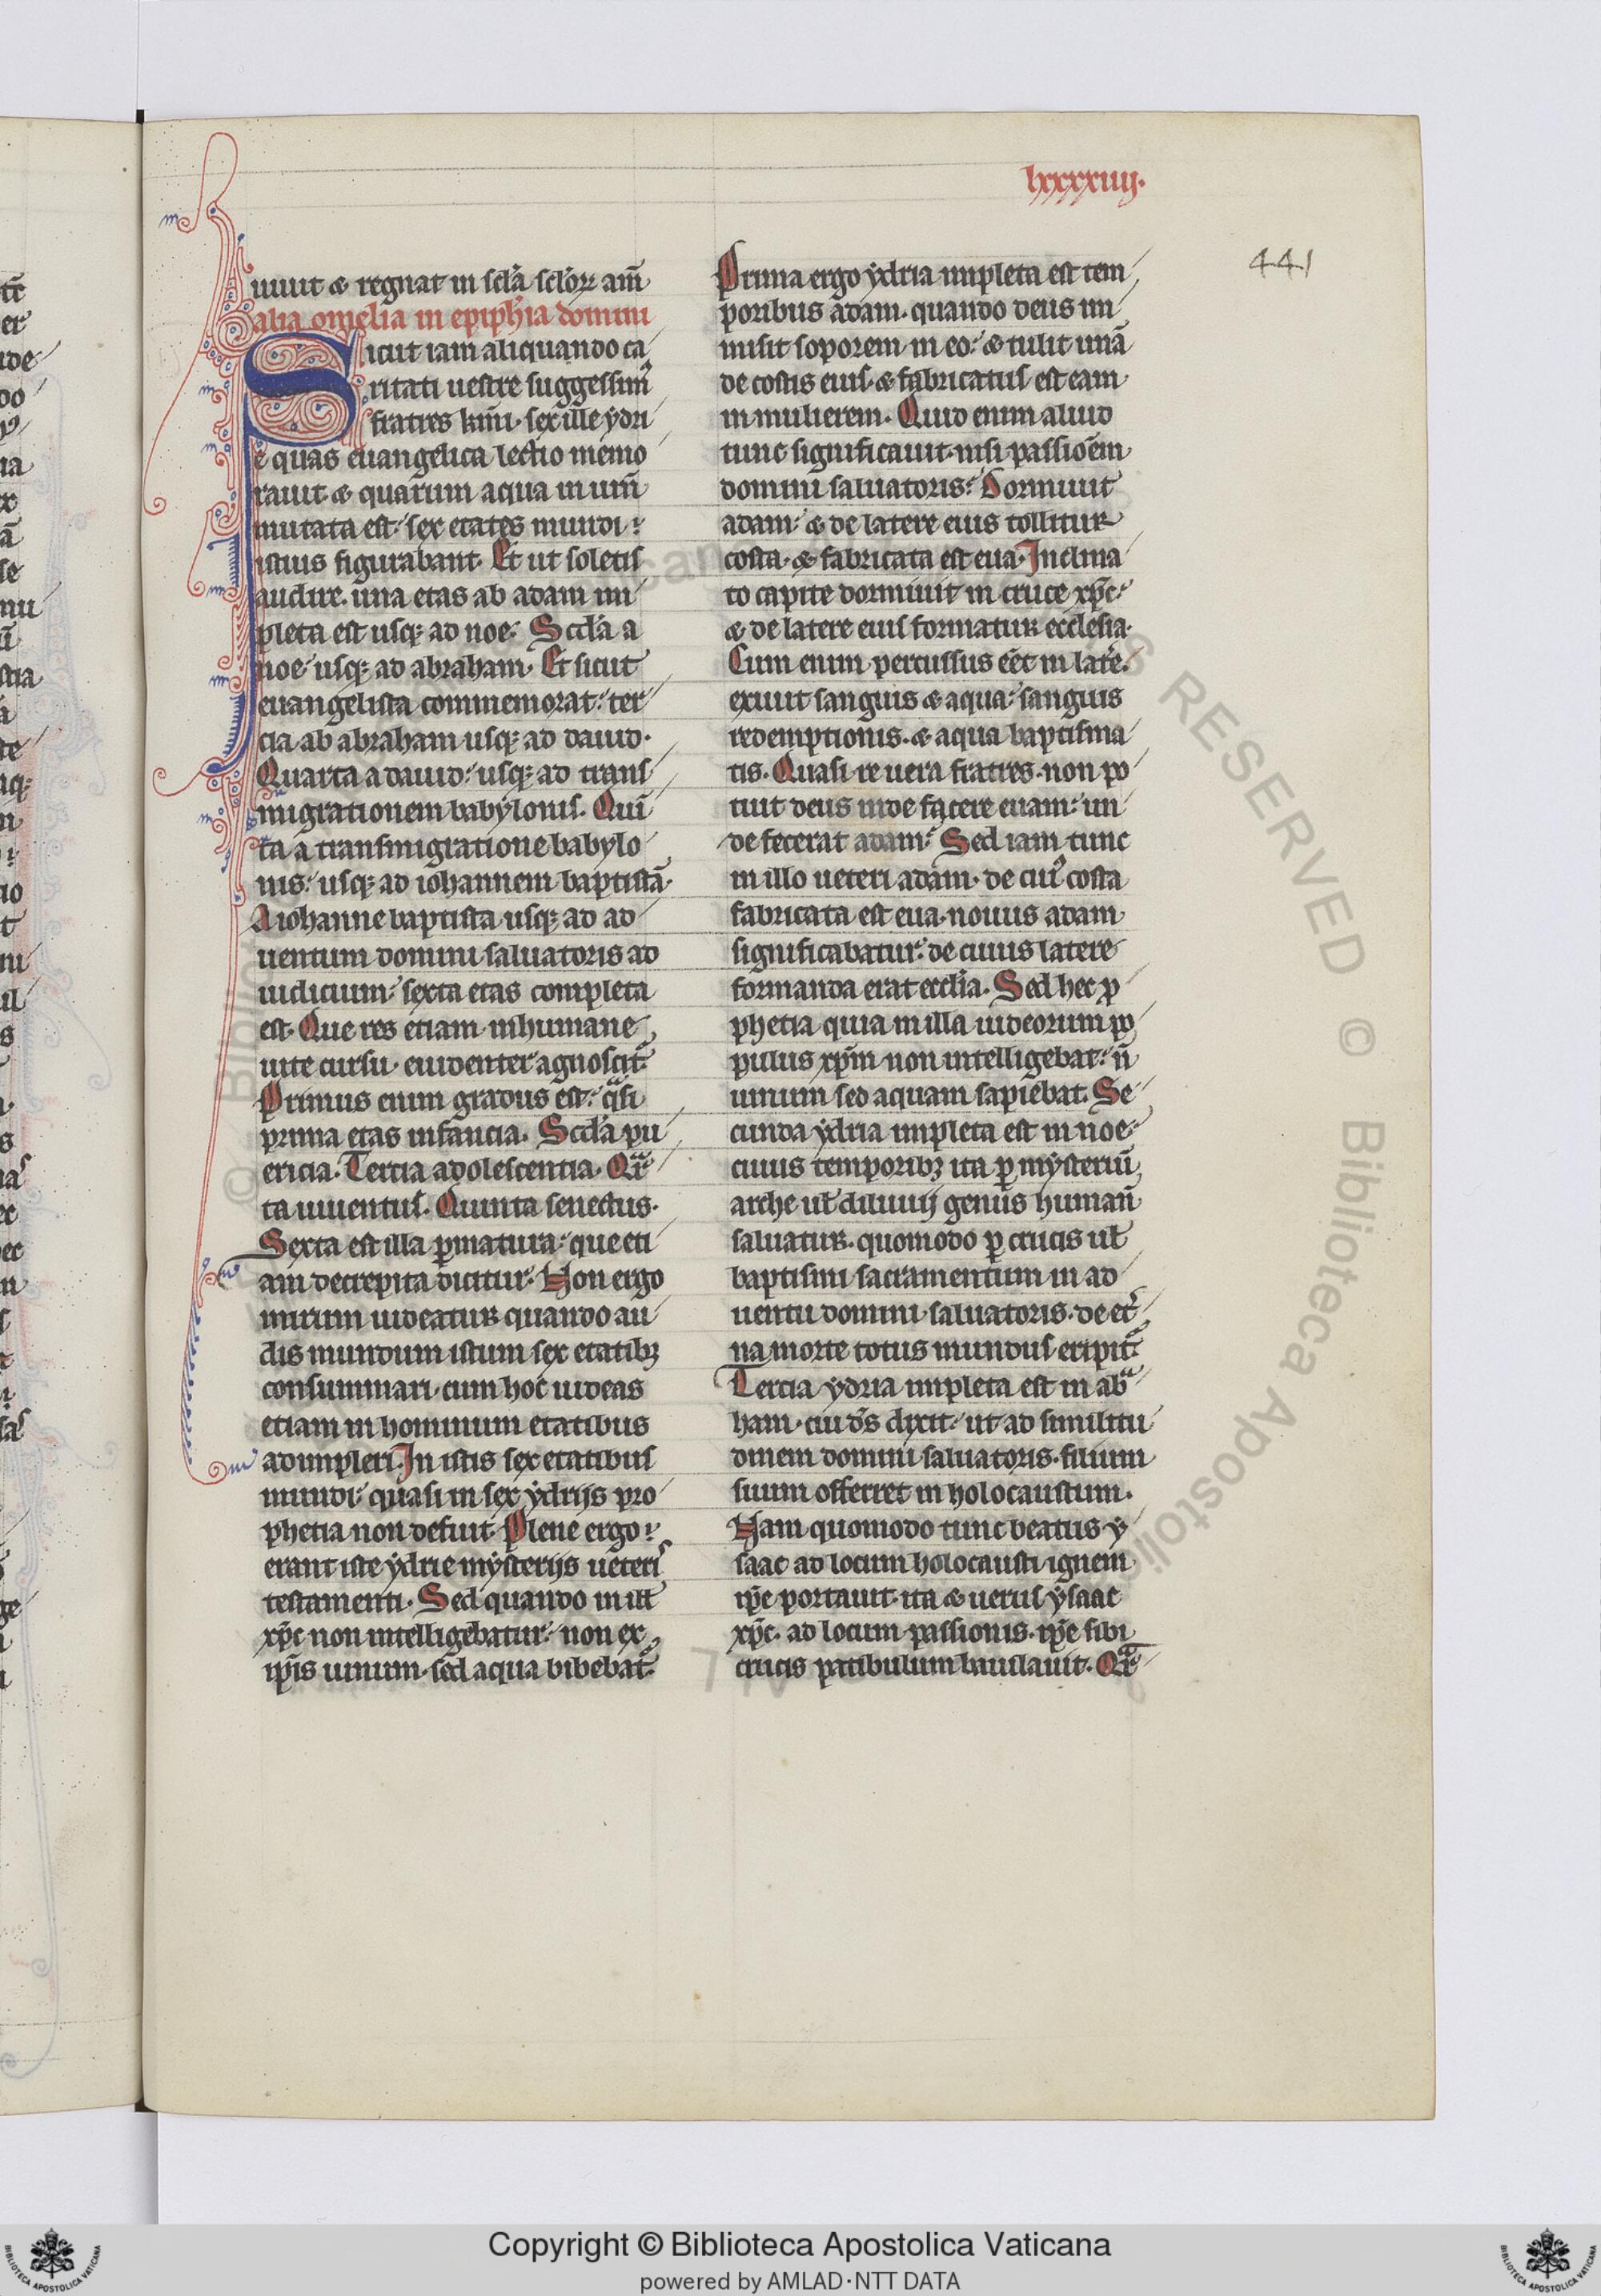 lxxxxiiij.
441
uiuit & regnat in scl̃a sclõꝝ am̃
alia omelia in epiph̃ia domini
Sicut iam aliquando ca
ritati uestre suggessimꝰ
fratres kṁi. sex ille ydri
e quas euangelica lectio memo
rauit & quarum aqua in uinũ
mutata est. sex etates mundi
istius figurabant. Et ut soletis
audire. una etas ab adam im
pleta est usqꝫ ad noe. Scd̃a a
noe usqꝫ ad abraham. Et sicut
euangelista commemorat. ter
cia ab abraham usqꝫ ad dauid.
Quarta a dauid. usqꝫ ad trans
migrationem babylonis. Quĩ
ta a transmigratione babylo
nis. usqꝫ ad iohannem baptistã.
A iohanne baptista usqꝫ ad ad
uentum domini saluatoris ad
iudicium. sexta etas completa
est. Que res etiam in humane
uite cursu. euidenter agnoscit᷑.
Primus enim gradus est. qͣsi
prima etas infancia. Scd̃a pu
ericia. Tercia adolescentia. Qͣr
ta iuuentus. Quinta senectus.
Sexta est illa ꝑmatura. que eti
am decrepita dicitur. Non ergo
mirum uideatur quando au
dis mundum istum sex etatibꝫ
consummari. cum hoc uideas
etiam in hominum etatibus
adimpleri. In istis sex etatibus
mundi quasi in sex ydrijs pro
phetia non defuit. Plene ergo
erant iste ydrie mysterijs ueteris
testamenti. Sed quando in ill̃
xp̃c non intelligebatur. non ex
ip̃is uinum. sed aqua bibebat᷑.
Prima ergo ydria impleta est tem
poribus adam. quando deus im
misit soporem in eo. & tulit unã
de costis eius. & fabricatus est eam
in mulierem. Quid enim aliud
tunc significauit. nisi passiõem
domini saluatoris. Dormiuit
adam. & de latere eius tollitur
costa. & fabricata est eua. Inclina
to capite dormiuit in cruce xp̃c.
& de latere eius formatur ecclesia.
Cum enim percussus eẽt in lat̾e.
exiuit sanguis & aqua. sanguis
redemptionis. & aqua baptisma
tis. Quasi re uera fratres. non po
tuit deus inde facere euam. un
de fecerat adam. Sed iam tunc
in illo ueteri adam. de cuiꝰ costa
fabricata est eua. nouus adam
significabatur. de cuius latere
formanda erat eccl̃ia. Sed hec ꝓ
phetia quia in illa iudeorum po
pulus xp̃m non intelligebat. ñ
uinum sed aquam sapiebat. Se
cunda ydria impleta est in noe.
cuius temporibꝫ ita ꝑ mysteriũ
arche ul̃ diluuij genus humanũ
saluatur. quomodo ꝑ crucis ul̃
baptismi sacramentum in ad
uentu domini saluatoris. de et̾
na morte totus mundus eripit᷑.
Tercia ydria impleta est in abͣ
ham. cui dс̃ dixit. ut ad similitu
dinem domini saluatoris. filium
suum offerret in holocaustum.
Nam quomodo tunc beatus y
saac ad locum holocausti ignem
ip̃e portauit. ita & uerus ysaac
xp̃c. ad locum passionis. ip̃e sibi
crucis patibulum baiulauit. Qͣr
Copyright © Biblioteca Apostolica Vaticana
powered by AMLAD·NTT DATA